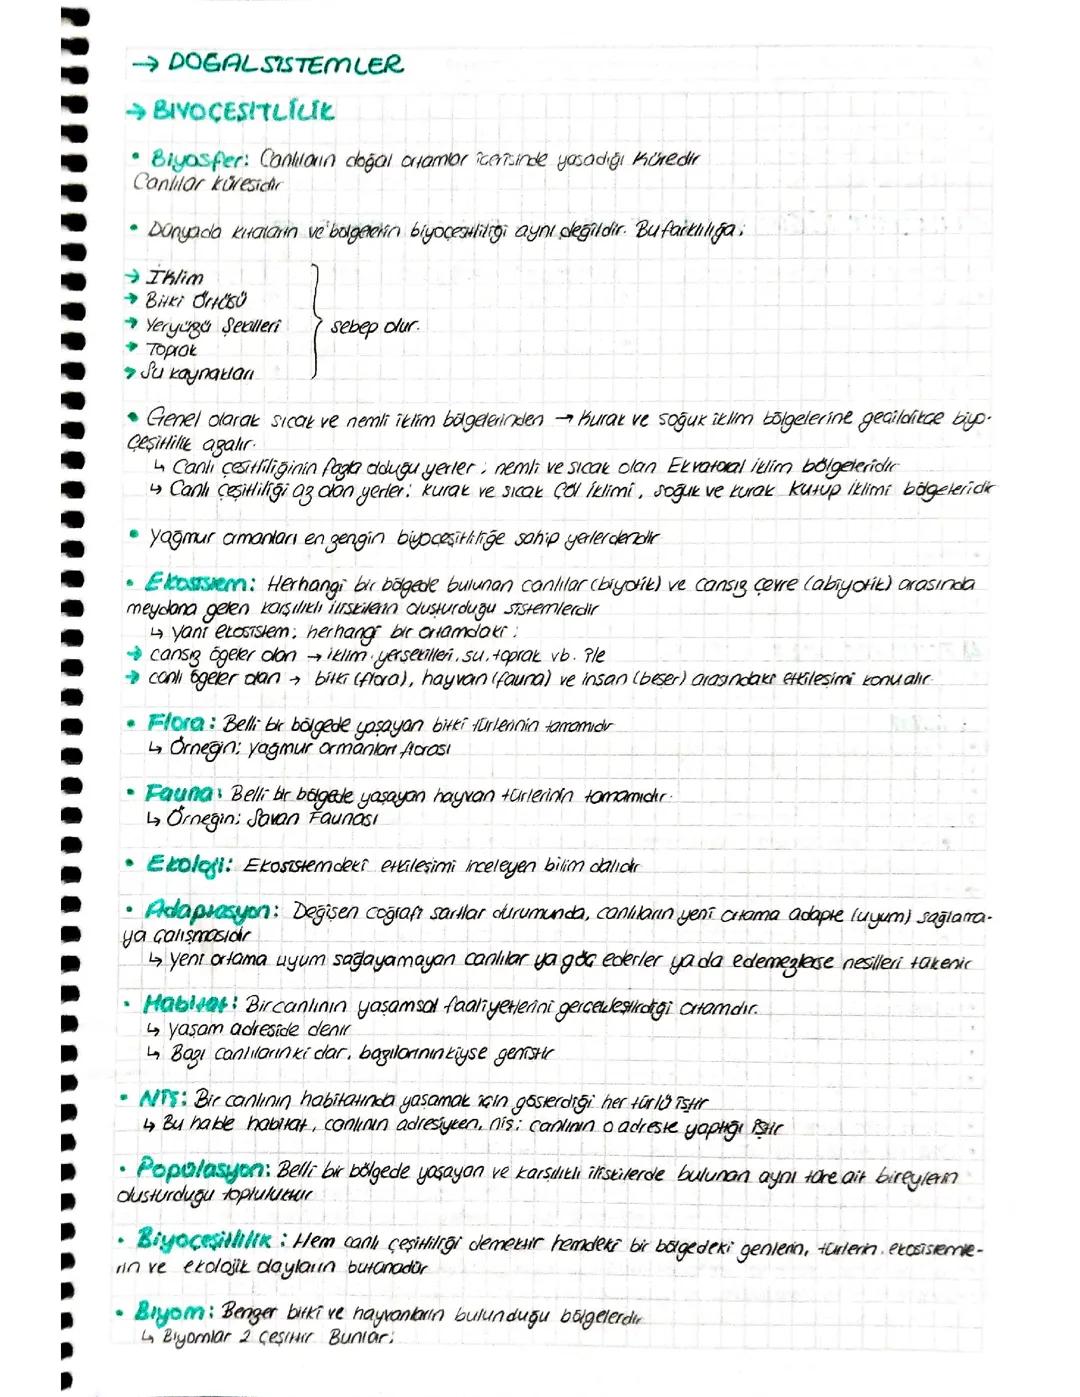 → DOĞAL SİSTEMLER
→ BİYOÇEŞİTLİLİK
• Biyosfer: Canlıların doğal ortamlar içerisinde yaşadığı küredir
Canlılar küresidir
• Dünyada kıtaların ve bölgelerin biyoçeşitliliği aynı değildir. Bu farklılığa;
→ İklim
→ Bitki Örtüsü
→ Yeryüzü Şekilleri
→ Toprak
→ Su kaynakları
sebep olur.
• Genel olarak sıcak ve nemli iklim bölgelerinden → Kurak ve soğuk iklim bölgelerine geçildikçe biyo-
çeşitlilik azalır.
↳ Canlı çeşitliliğinin fazla olduğu yerler; nemli ve sıcak olan Ekvatoral iklim bölgeleridir
↳ Canlı çeşitliliği az olan yerler: kurak ve sıcak Çöl iklimi, soğuk ve kurak Kutup iklimi bölgeleridir
• Yağmur ormanları en zengin biyoçeşitliliğe sahip yerlerdendir
• Ekosistem: Herhangi bir bölgede bulunan canlılar (biyotik) ve cansız çevre (abiyotik) arasında
meydana gelen karşılıklı ilişkilerin oluşturduğu sistemlerdir
↳ Yani ekosistem; herhangi bir ortamdaki;
→ cansız ögeler olan → iklim, yerşekilleri, su, toprak vb. ile
→ canlı ögeler olan → bitki (flora), hayvan (fauna) ve insan (beşer) arasındaki etkileşimi konu alır
• Flora: Belli bir bölgede yaşayan bitki türlerinin tamamıdır
↳ Örneğin; yağmur ormanları florası
• Fauna: Belli bir bölgede yaşayan hayvan türlerinin tamamıdır.
↳ Örneğin; Savan Faunası
• Ekoloji: Ekosistemdeki etkileşimi inceleyen bilim dalıdır
• Adaptasyon: Değişen coğrafi şartlar durumunda, canlıların yeni ortama adapte (uyum) sağlama-
ya çalışmasıdır
↳ Yeni ortama uyum sağlayamayan canlılar ya göç ederler ya da edemezlerse nesilleri tükenir
• Habitat: Bir canlının yaşamsal faaliyetlerini gerçekleştirdiği ortamdır.
↳ Yaşam adreside denir
↳ Bazı canlılarınki dar, bazılarınınkiyse geniştir
• Niş: Bir canlının habitatında yaşamak için gösterdiği her türlü iştir
↳ Bu halde habitat, canlının adresiyken, niş; canlının o adreste yaptığı iştir
• Popülasyon: Belli bir bölgede yaşayan ve karşılıklı ilişkilerde bulunan aynı türe ait bireylerin
oluşturduğu topluluktur
• Biyoçeşitlilik: Hem canlı çeşitliliği demektir hemdeki bir bölgedeki genlerin, türlerin, ekosistemle-
rin ve ekolojik olayların bütünüdür
• Biyom: Benzer bitki ve hayvanların bulunduğu bölgelerdir
↳ Biyomlar 2 çeşittir Bunlar;